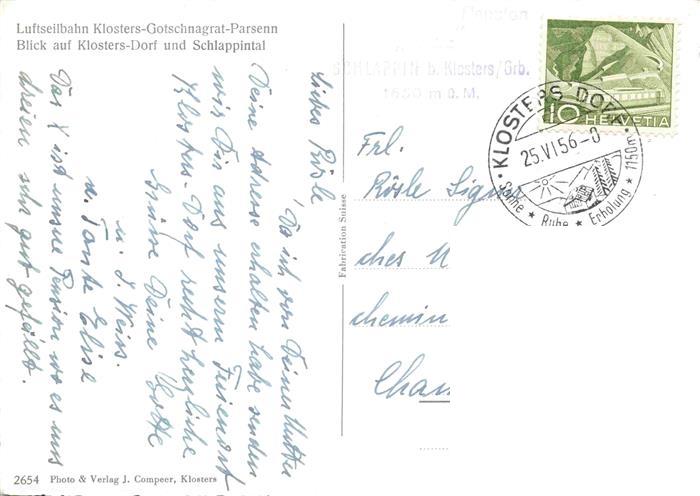 Luftseilbahn Klosters-Gotschnagrat-Parsenn
Blick auf Klosters-Dorf und Schlappintal
Liebes Rösle
Da ich von Deiner Mutter
Deine Adresse erhalten habe senden
wir Dir aus unserm Ferienort
Klosters-Dorf recht herzliche
Grüsse Deine Gotte
u. J. Weiss.
u. Tante Elise
Das X ist unsre Pension wo es uns
dreien sehr gut gefällt.
2654 Photo & Verlag J. Compeer, Klosters
Fabrication Suisse
Pension
SCHLAPPIN b. Klosters/Grb.
1650 m ü. M.
10 HELVETIA
KLOSTERS DORF
25.VI.56-0
1150m
Sonne ★ Ruhe ★ Erholung ★
Frl.
Rösle
ches
chemin